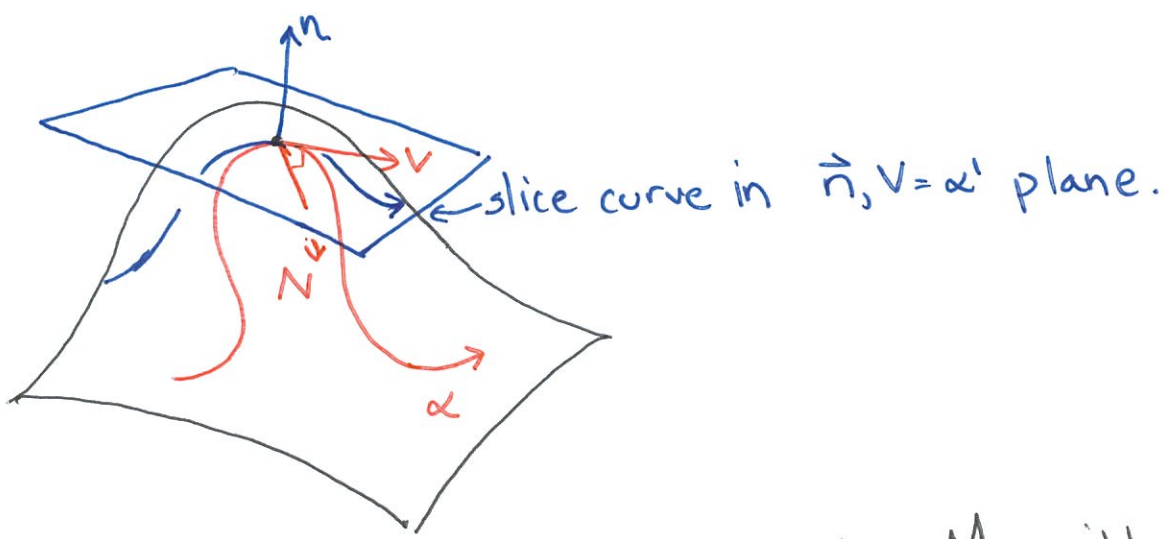 n
V
slice curve in n⃗, V = α' plane.
N
α